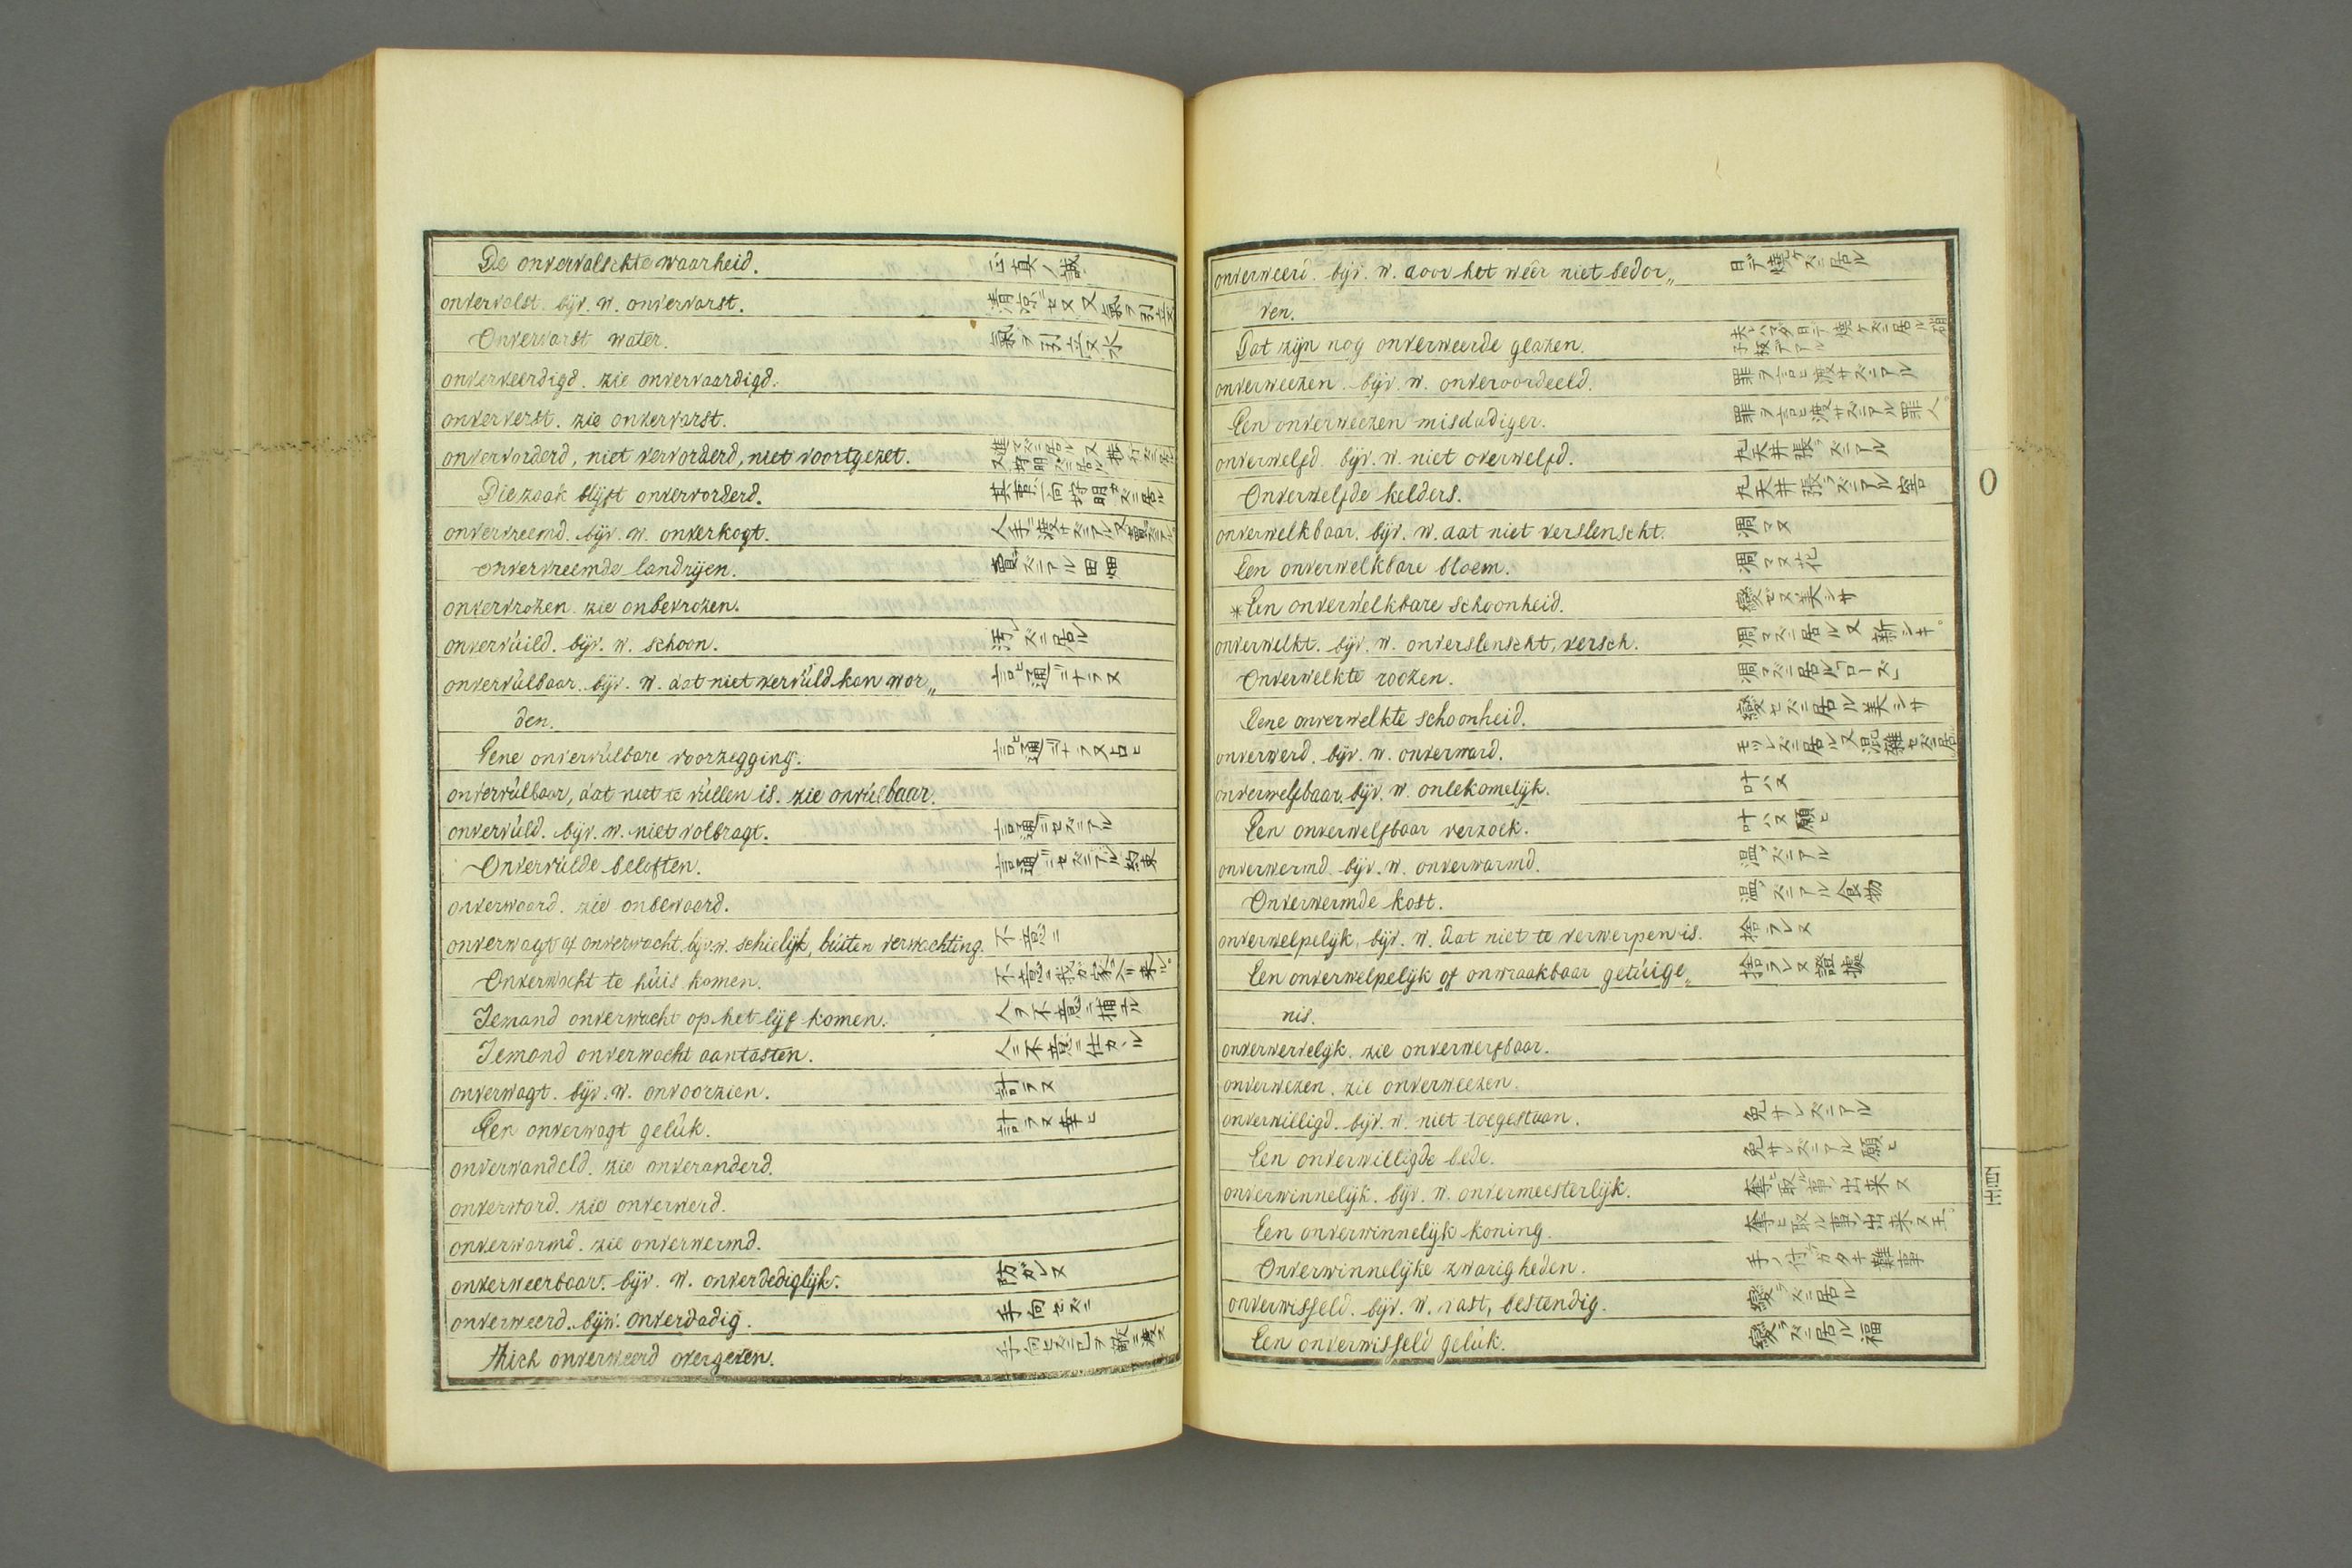 De onvervalschte waarheid. 正真ノ誠
onvervolst. bijv. w. onvervarst.
Onvervarst water. 氣ヲ引立ヌ水
onverveerdigd. zie onvervaardigd.
onververst. zie onvervarst.
onvervorderd, niet vervorderd, niet voortgezet.
Die zaak blijft onvervorderd.
onvervreemd. bijv. w. onverkogt.
onvervreemde landrijen. 賣ズニアル田畑
onvervrozen. zie onbevrozen.
onvervúild. bijv. w. schoon. 汚レズニ居ル
onvervúlbaar. bijv. w. dat niet vervúld kan wor„ 言ヒ通リニナラヌ
den.
Eene onvervúlbare voorzegging. 言ヒ通リニナラヌ占ヒ
onvervúlbaar, dat niet te vúllen is. zie onvúlbaar.
onvervúld. bijv. w. niet volbragt. 言通リニセズニアル
Onvervúlde beloften. 言通リニセズニアル約束
onverwaard. zie onbewaard.
onverwagt of onverwacht. bijv. w. schielijk, búiten verwachting. 不意ニ
Onverwacht te húis komen. 不意ニ我ガ家ヘ來ル。
Iemand onverwacht op het lijf komen. 人ヲ不意ニ捕ヘル
Iemand onverwacht aantasten. 人ニ不意ニ仕カヽル
onverwagt. bijv. w. onvoorzien. 計ラヌ
Een onverwagt gelúk. 計ラヌ幸ヒ
onverwandeld. zie onveranderd.
onverward. zie onverwerd.
onverwarmd. zie onverwermd.
onverweerbaar. bijv. w. onverdediglijk. 防ガレヌ
onverweerd. bijw. onverdadig. 手向セズニ
Zich onverweerd overgeven. 手向ヒセズニ己ヲ敵ニ渡ス
onverweerd. bijv. w. door het wêer niet bedor„ 日デ燒ケズニ居ル
ven.
Dat zijn nog onverweerde glazen. 夫レハマダ日デ燒ケズニ居ル硝
子板デアル
onverweezen. bijv. w. onveroordeeld. 罪ヲ言ヒ渡サズニアル
Een onverweezen misdadiger. 罪ヲ言ヒ渡サズニアル罪人。
onverwelfd. bijv. w. niet overwelfd. 丸天井張ラズニアル
Onverwelfde kelders. 丸天井張ラズニアル窖
onverwelkbaar. bijv. w. dat niet verslenscht. 凋マヌ
Een onverwelkbare bloem. 凋マヌ花
*Een onverwelkbare schoonheid. 變ゼヌ美シサ
onverwelkt. bijv. w. onverslenscht, versch. 凋マズニ居ル又新シキ。
Onverwelkte roozen. 凋マズニ居ル「ローズ」
Eene onverwelkte schoonheid. 變ゼズニ居ル美シサ
onverwerd. bijv. w. onverward. モツレズニ居ル又混雜セズニ居ル
onverwelfbaar. bijv. w. onlekomelijk. 叶ハヌ
Een onverwelfbaar verzoek. 叶ハヌ願ヒ
onverwermd. bijv. w. onverwarmd. 温メズニアル
Onverwermde kost. 温メズニアル食物
onverwelpelijk, bijv. w. dat niet te verwerpen is. 捨ラレヌ
Een onverwelpelijk of onwraakbaar getúige„ 捨ラレヌ證據
nis.
onverwervelijk. zie onverwerfbaar.
onverwezen. zie onverweezen.
onverwilligd. bijv. w. niet toegestaan. 免サレズニアル
Een onverwilligde bede. 免サレズニアル願ヒ
onverwinnelijk. bijv. w. onvermeesterlijk. 奪ヒ取ル事ノ出来ヌ
Een onverwinnelijk koning. 奪ヒ取ル事ノ出来ヌ王。
Onverwinnelijke zwarigheden. 手ノ付ケガタキ難事
onverwisseld. bijv. w. vast, bestendig. 變ラズニ居ル
Een onverwisseld gelúk. 變ラズニ居ル福
O